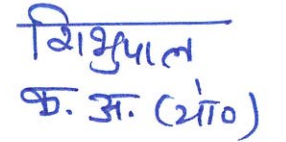 शिभुपाल
क. अ. (यां०)